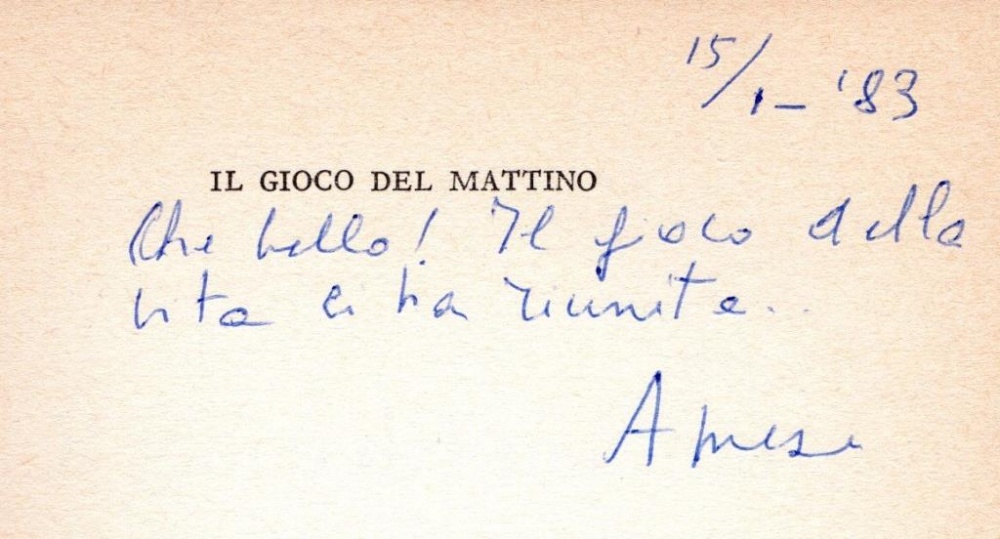 15/1- '83
IL GIOCO DEL MATTINO
Che bello! Il gioco della
vita ci ha riunite..